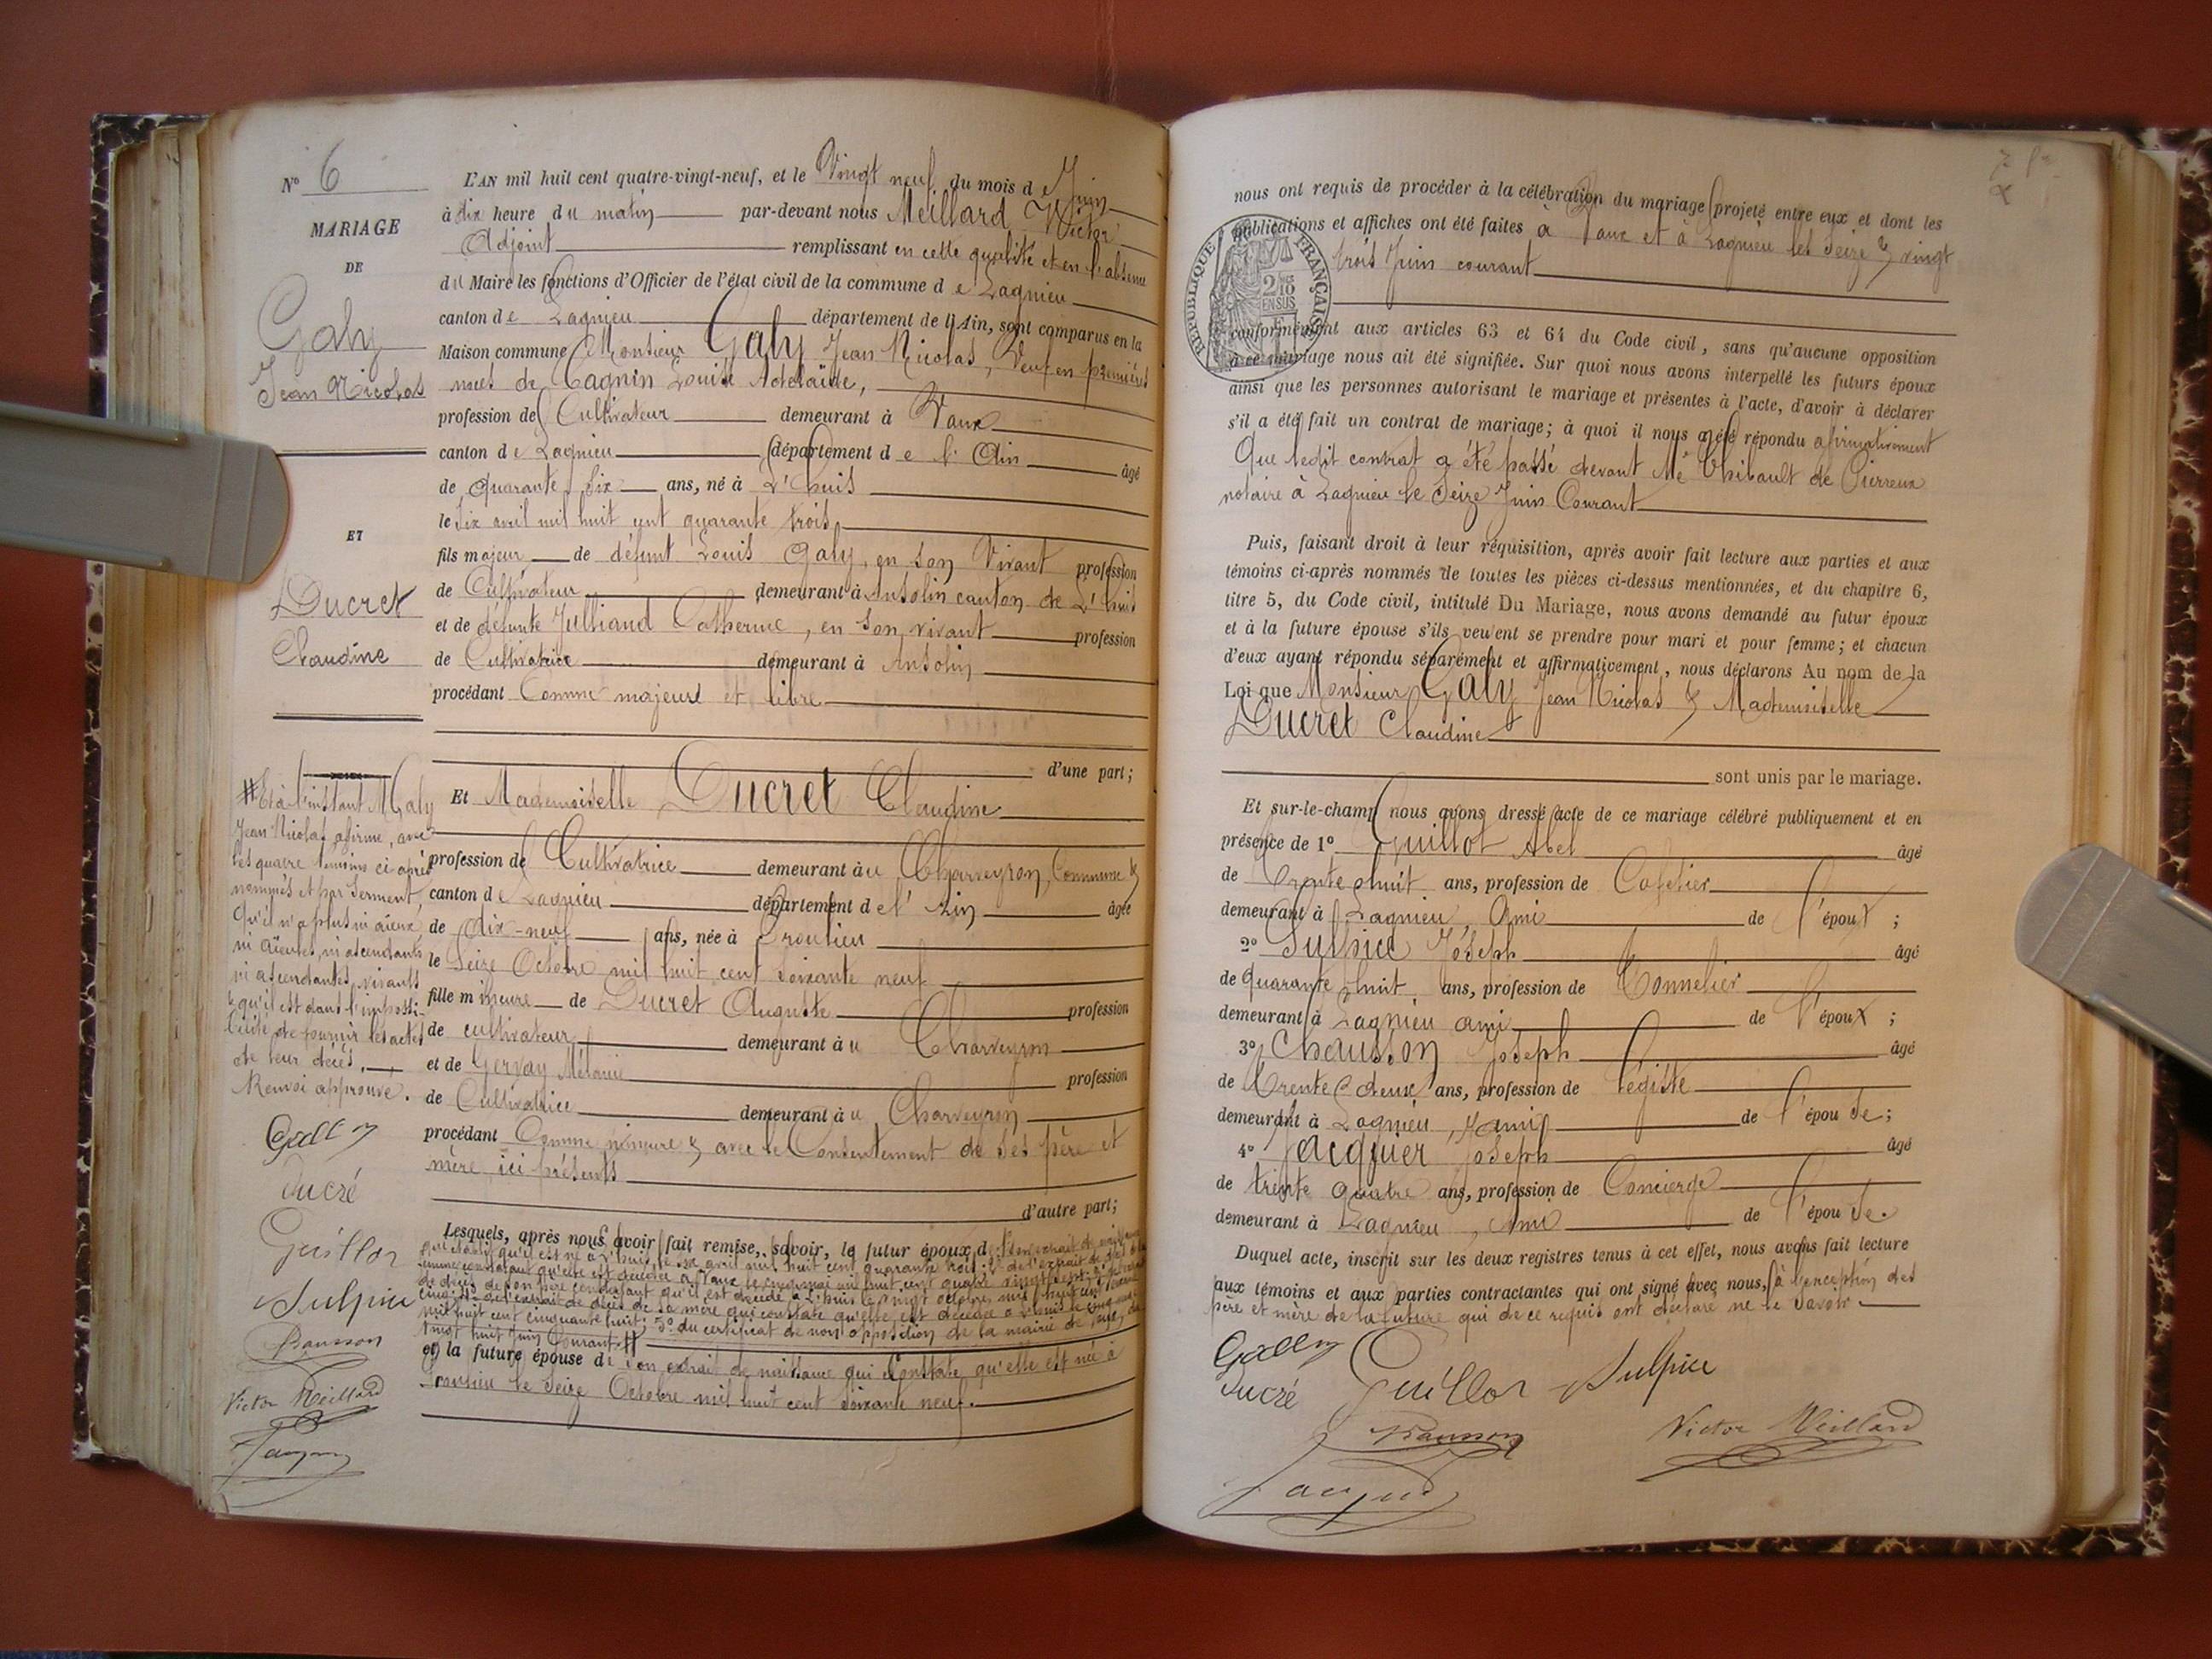 N° 6
MARIAGE
DE
Galy
Jean Nicolas
ET
Ducret
Claudine
L'AN mil huit cent quatre-vingt-neuf, et le Vingt neuf du mois de Juin
à dix heure du matin par-devant nous Meillard Victor
Adjoint remplissant en cette qualité et en l'absence
du Maire les fonctions d'Officier de l'état civil de la commune de Lagnieu
canton de Lagnieu département de l'Ain, sont comparus en la
Maison commune Monsieur Galy Jean Nicolas, Veuf en premières
noces de Cagnin Louise Adelaïde,
profession de Cultivateur demeurant à Vaux
canton de Lagnieu département de l'Ain âgé
de quarante six ans, né à L'huis
le six avril mil huit cent quarante trois
fils majeur de défunt Louis Galy, en son Vivant profession
de Cultivateur demeurant à Ansolin canton de L'huis
et de défunte Julliand Catherine, en son vivant profession
de Cultivatrice demeurant à Ansolin
procédant Comme majeur et libre
d'une part;
Et Mademoiselle Ducret Claudine
profession de Cultivatrice demeurant à Charveyron, Commune &
canton de Lagnieu département de l'Ain âgée
de dix-neuf ans, née à Proulieu
le Seize Octobre mil huit cent soixante neuf
fille mineure de Ducret Auguste profession
de cultivateur demeurant à Charveyron
et de Gervay Mélanie profession
de Cultivatrice demeurant à Charveyron
procédant Comme mineure & avec le Consentement de ses père et
mère ici présents
d'autre part;
Lesquels, après nous avoir fait remise, savoir, le futur époux de son extrait de naissance
qui établit qu'il est né à L'huis le six avril mil huit cent quarante trois; 2° de l'extrait de
femme constatant qu'elle est décédée à Vaux le mai mil huit cent quatre vingt sept
de décès de son père constatant qu'il est décédé à L'huis le vingt octobre mil huit cent
cinq; 4° de l'extrait de décès de sa mère qui constate qu'elle est décédée à L'huis le
mil huit cent cinquante huit; 5° du certificat de non opposition de la mairie de Vaux, du
vingt huit Juin Courant #
et la future épouse de son extrait de naissance qui Constate qu'elle est née à
Proulieu le Seize Octobre mil huit cent soixante neuf.
# Et à l'instant M Galy
Jean Nicolas, afirme, avec
les quatre témoins ci après
nommés et par serment,
qu'il n'a plus ni aïeux
ni aïeules, ni ascendants
ni ascendantes vivants
& qu'il est dans l'impossi-
bilité de fournir les actes
de leur décès.
Renvoi approuvé.
Gally
Ducré
Guillot
Sulpice
Chausson
Victor Meillard
Jacquier
nous ont requis de procéder à la célébration du mariage projeté entre eux et dont les
publications et affiches ont été faites à Vaux et à Lagnieu les seize & vingt
trois Juin courant
RÉPUBLIQUE FRANÇAISE
EN SUS
conformément aux articles 63 et 64 du Code civil, sans qu'aucune opposition
à ce mariage nous ait été signifiée. Sur quoi nous avons interpellé les futurs époux
ainsi que les personnes autorisant le mariage et présentes à l'acte, d'avoir à déclarer
s'il a été fait un contrat de mariage; à quoi il nous a été répondu afirmativement
Que ledit contrat a été passé devant Mé Thibault de Pierreux
notaire à Lagnieu le Seize Juin Courant
Puis, faisant droit à leur réquisition, après avoir fait lecture aux parties et aux
témoins ci-après nommés de toutes les pièces ci-dessus mentionnées, et du chapitre 6,
titre 5, du Code civil, intitulé Du Mariage, nous avons demandé au futur époux
et à la future épouse s'ils veulent se prendre pour mari et pour femme; et chacun
d'eux ayant répondu séparément et affirmativement, nous déclarons Au nom de la
Loi que Monsieur Galy Jean Nicolas & Mademoiselle
Ducret Claudine
sont unis par le mariage.
Et sur-le-champ nous avons dressé acte de ce mariage célébré publiquement et en
présence de 1° Guillot Abel âgé
de Trente huit ans, profession de Cafetier
demeurant à Lagnieu, Ami de l'époux;
2° Sulpice Joseph âgé
de quarante huit ans, profession de Tonnelier
demeurant à Lagnieu ami de l'époux;
3° Chausson Joseph âgé
de Trente deux ans, profession de Légiste
demeurant à Lagnieu, ami de l'épouse;
4° Jacquier Joseph âgé
de trente quatre ans, profession de Concierge
demeurant à Lagnieu, Ami de l'épouse.
Duquel acte, inscrit sur les deux registres tenus à cet effet, nous avons fait lecture
aux témoins et aux parties contractantes qui ont signé avec nous, à l'exception des
père et mère de la future qui de ce requis ont déclaré ne le savoir.
Gally
Ducré
Guillot
Sulpice
Chausson
Victor Meillard
Jacquier